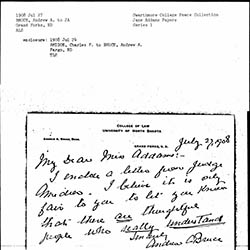 1908 Jul 27
BRUCE, Andrew A. to JA
Grand Forks, ND
ALS
Swarthmore College Peace Collection
Jane Addams Papers
Series 1
enclosure: 1908 Jul 24
AMIDON, Charles F. to BRUCE, Andrew A.
Fargo, ND
TLS
COLLEGE OF LAW
UNIVERSITY OF NORTH DAKOTA
ANDREW A. BRUCE, DEAN
GRAND FORKS, N. D.
July 27, 1908
My Dear Miss Addams:-
I enclose a letter from Judge
Amidon. I believe it is only
fair to you to let you know
that there are thoughtful
people who really understand
Andrew A Bruce